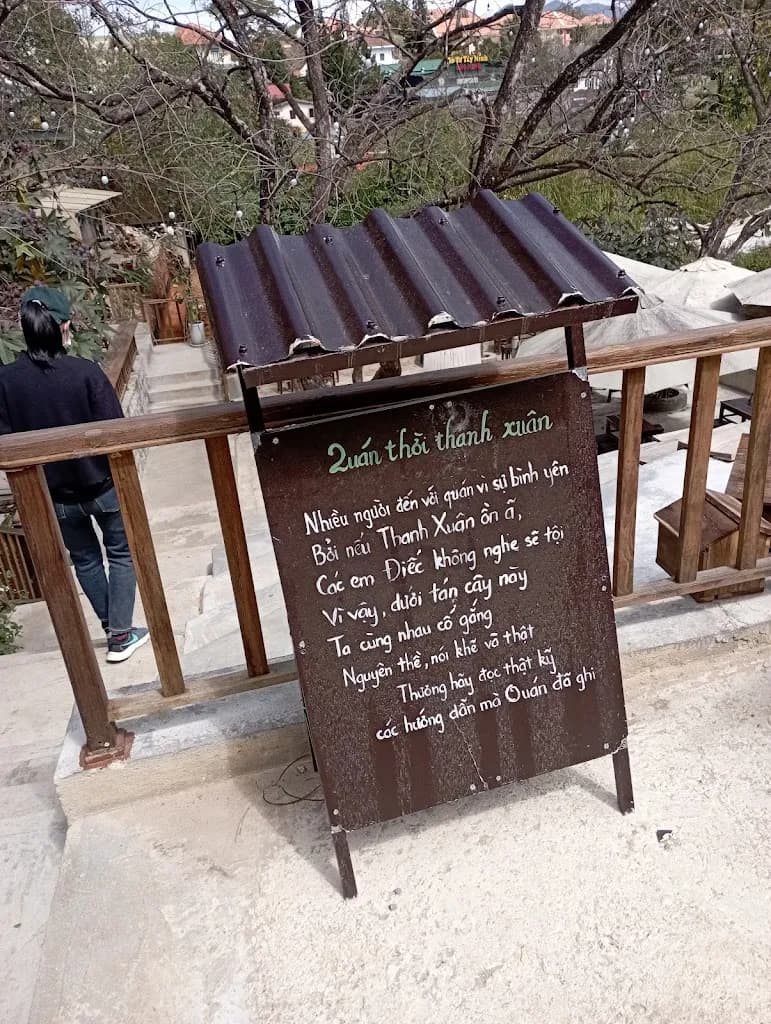 Tây Ninh
Quán thời thanh xuân
Nhiều người đến với quán vì sự bình yên
Bởi nếu Thanh Xuân ồn ã,
Các em Điếc không nghe sẽ tội
Vì vậy, dưới tán cây này
Ta cùng nhau cố gắng
Nguyện thề, nói khẽ và thật
Thương hãy đọc thật kỹ
các hướng dẫn mà Quán đã ghi